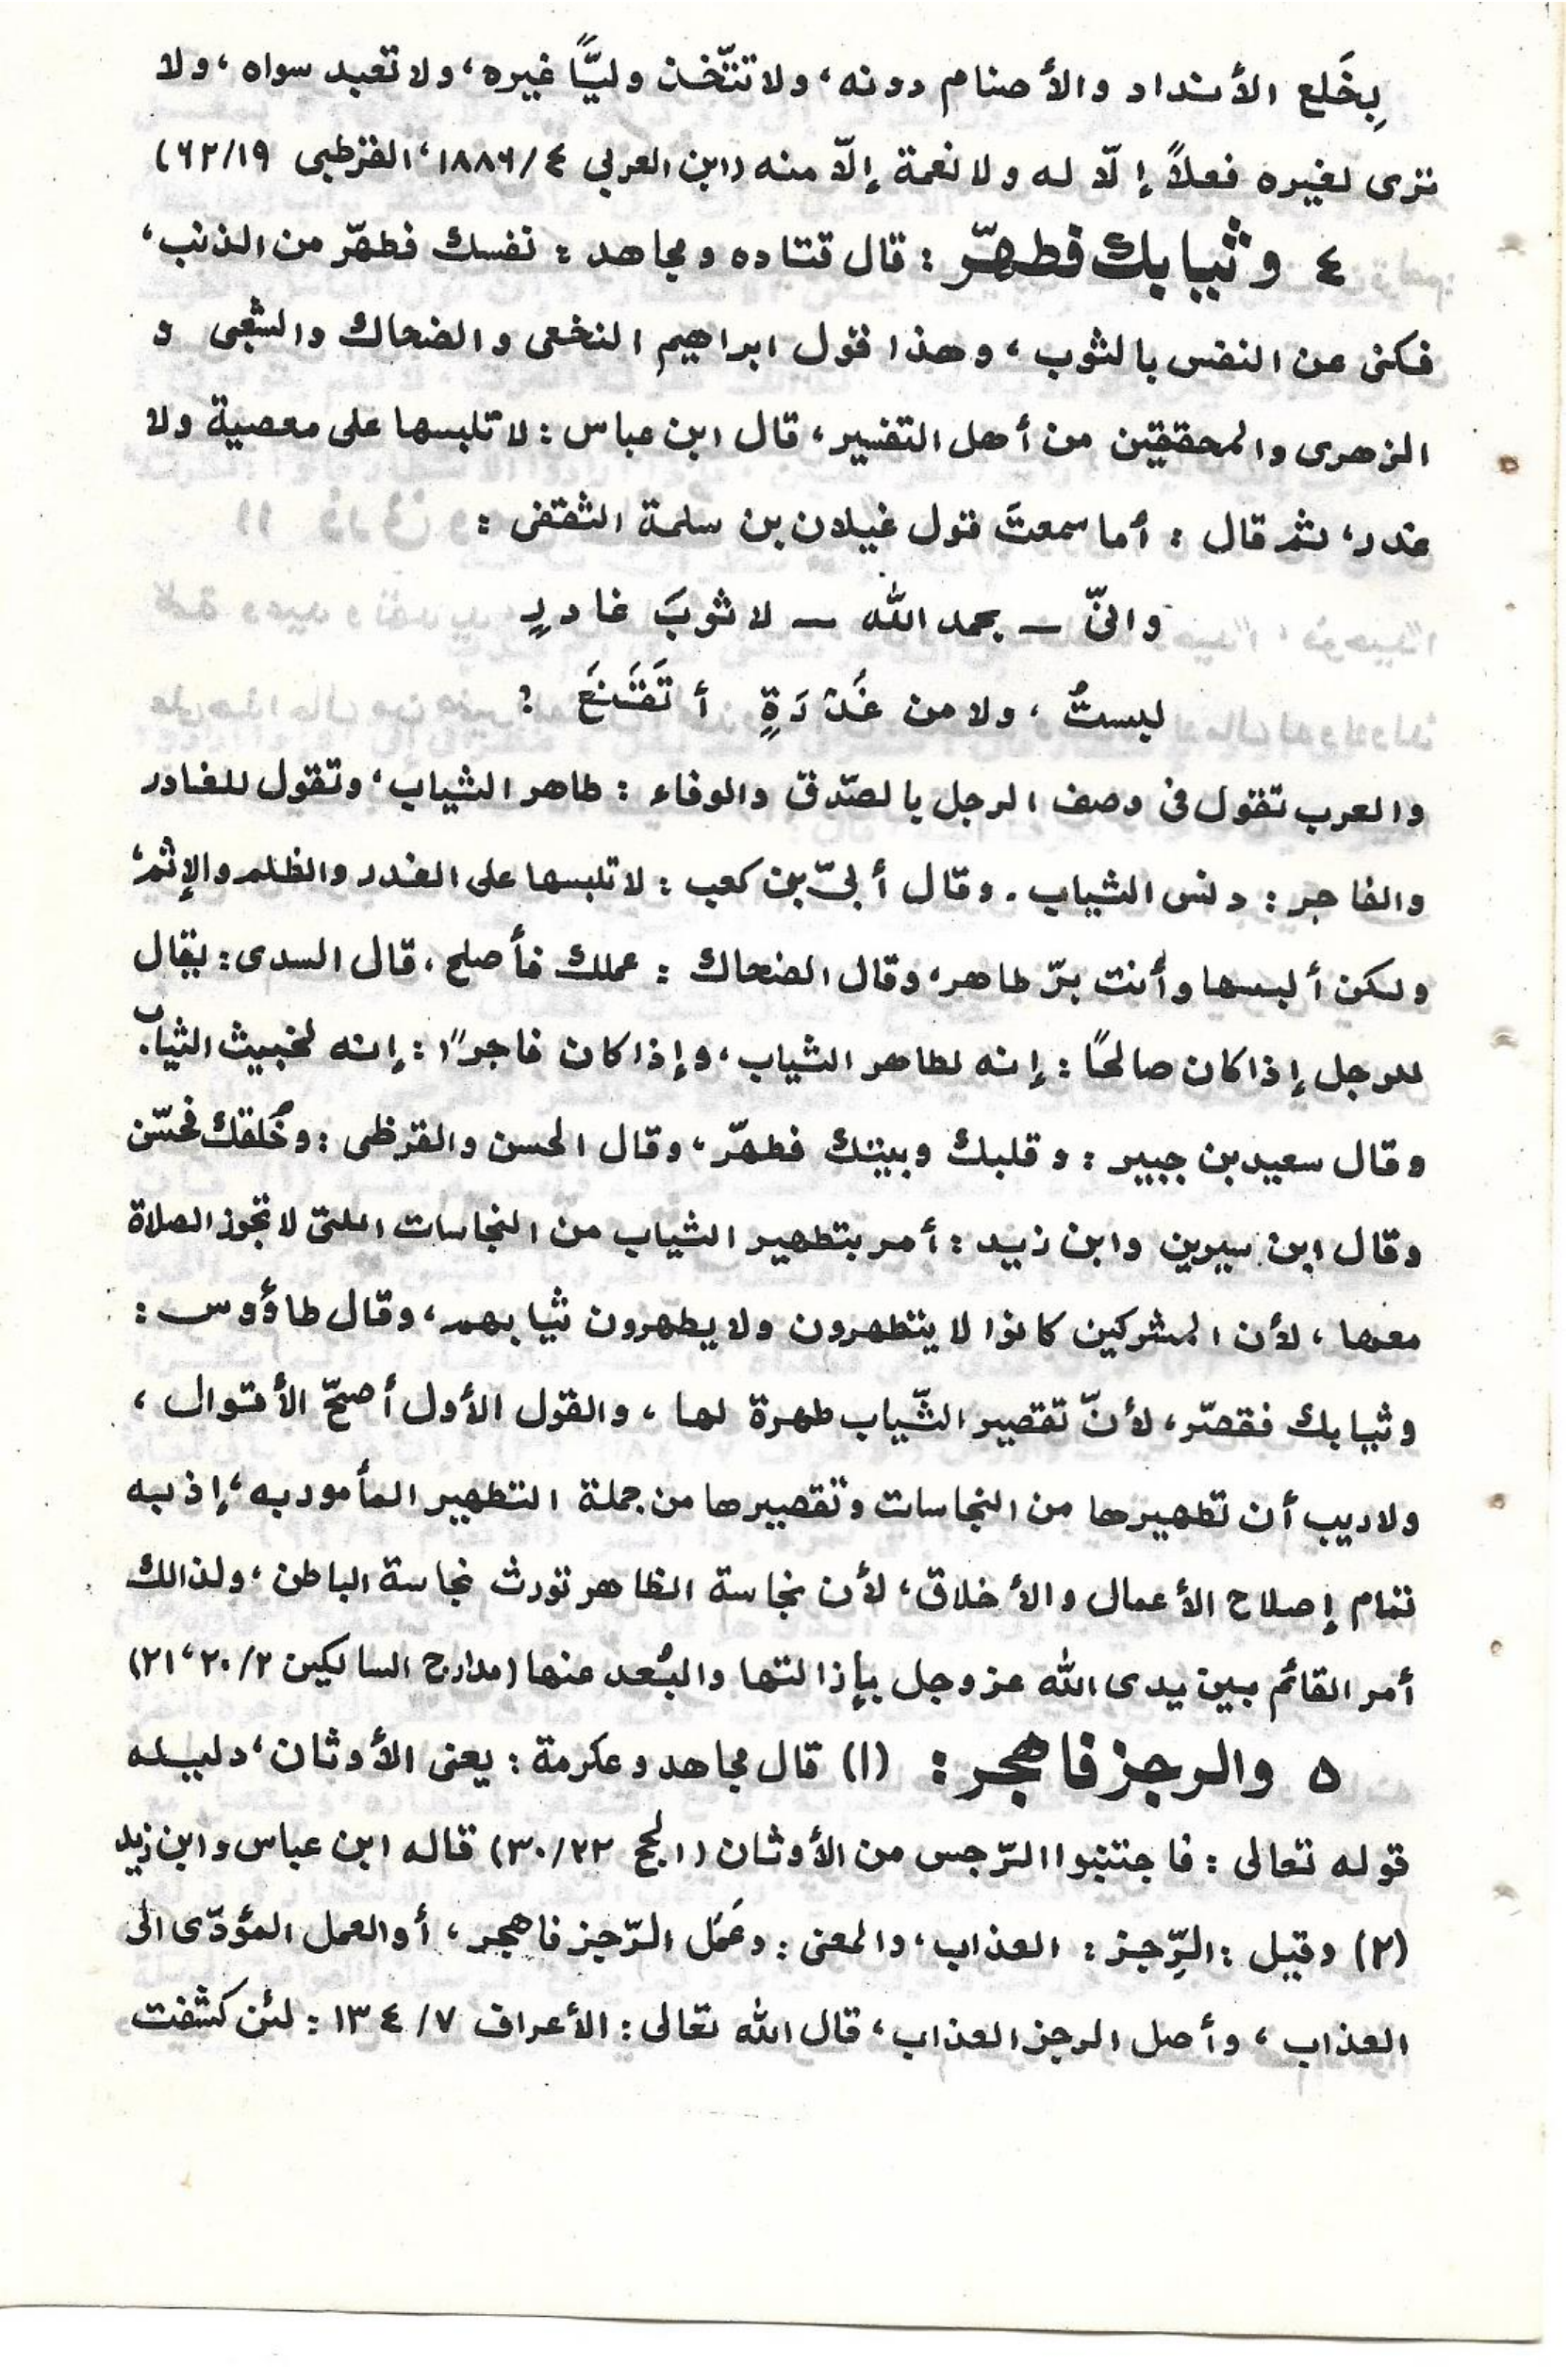 بِخَلع الأنداد والأصنام دونه، ولا تتّخذ وليًّا غيره، ولا تعبد سواه، ولا
ترى لغيره فعلاً إلّا له ولا نعمة إلّا منه (ابن العربي ٤/١٨٨٦، القرطبى ١٩/٦٢)
٤ وثيابك فطهّر : قال قتاده ومجاهد : نفسك فطهّر من الذنب،
فكنى عن النفس بالثوب، وهذا قول ابراهيم النخعى والضحاك والشعبى و
الزهرى والمحققين من أهل التفسير، قال ابن عباس : لا تلبسها على معصية ولا
غدر، ثم قال : أما سمعتَ قول غيلان بن سلمة الثقفى :
وانّى ــ بحمد الله ــ لا ثوبَ غادرٍ
لبستُ ، ولا من غَدْرَةٍ أتَقَنَّعَ ؟
والعرب تقول فى وصف الرجل بالصّدق والوفاء : طاهر الثياب، وتقول للغادر
والفاجر : دنس الثياب . وقال أبىّ بن كعب : لا تلبسها على الغدر والظلم والإثم،
ولكن ألبسها وأنت برّ طاهر، وقال الضحاك : عملك فأصلح، قال السدى : يقال
للرجل إذا كان صالحًا : إنه لطاهر الثياب، وإذا كان فاجرًا : إنه لخبيث الثياب.
وقال سعيد بن جبير : وقلبك وبيتك فطهّر، وقال الحسن والقرظى : وخُلقك فحسّن
وقال ابن سيرين وابن زيد : أمر بتطهير الثياب من النجاسات اللتى لا تجوز الصلاة
معها، لأن المشركين كانوا لا يتطهرون ولا يطهرون ثيابهم، وقال طاؤوس :
وثيابك فقصّر، لأنّ تقصير الثّياب طهرة لها، والقول الأول أصحّ الأقوال،
ولاريب أن تطهيرها من النجاسات وتقصيرها من جملة التطهير المأمور به، إذ به
تمام إصلاح الأعمال والأخلاق، لأن نجاسة الظاهر تورث نجاسة الباطن، ولذالك
أمر القائم بين يدى الله عز وجل بإزالتها والبُعد عنها (مدارج السالكين ٢/٢٠، ٢١)
٥ والرجز فاهجر : (١) قال مجاهد وعكرمة : يعنى الأوثان، دليله
قوله تعالى : فاجتنبوا الرّجس من الأوثان (الحج ٢٢/٣٠) قاله ابن عباس وابن زيد
(٢) وقيل : الرِّجز : العذاب، والمعنى : وعَمَل الرّجز فاهجر، أو العمل المؤدّى الى
العذاب، وأصل الرجز العذاب، قال الله تعالى : الأعراف ٧/١٣٤ : لئن كشفت